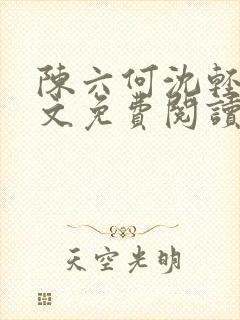 陳六何沈輕
文免費閱讀
天空光明